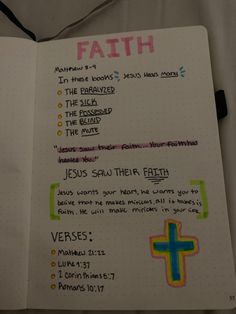 FAITH
Matthew 8-9
In these books JESUS HEALS MANY
THE PARALYZED
THE SICK
THE POSSESSED
THE BLIND
THE MUTE
"Jesus saw their faith... Your faith has
healed you."
JESUS SAW THEIR FAITH
Jesus wants your heart, he wants you to
belive that he makes miricals, all it takes is
faith. He will make miricles in your life
VERSES:
Matthew 21:22
Luke 1:37
2 Corinthians 5:7
Romans 10:17